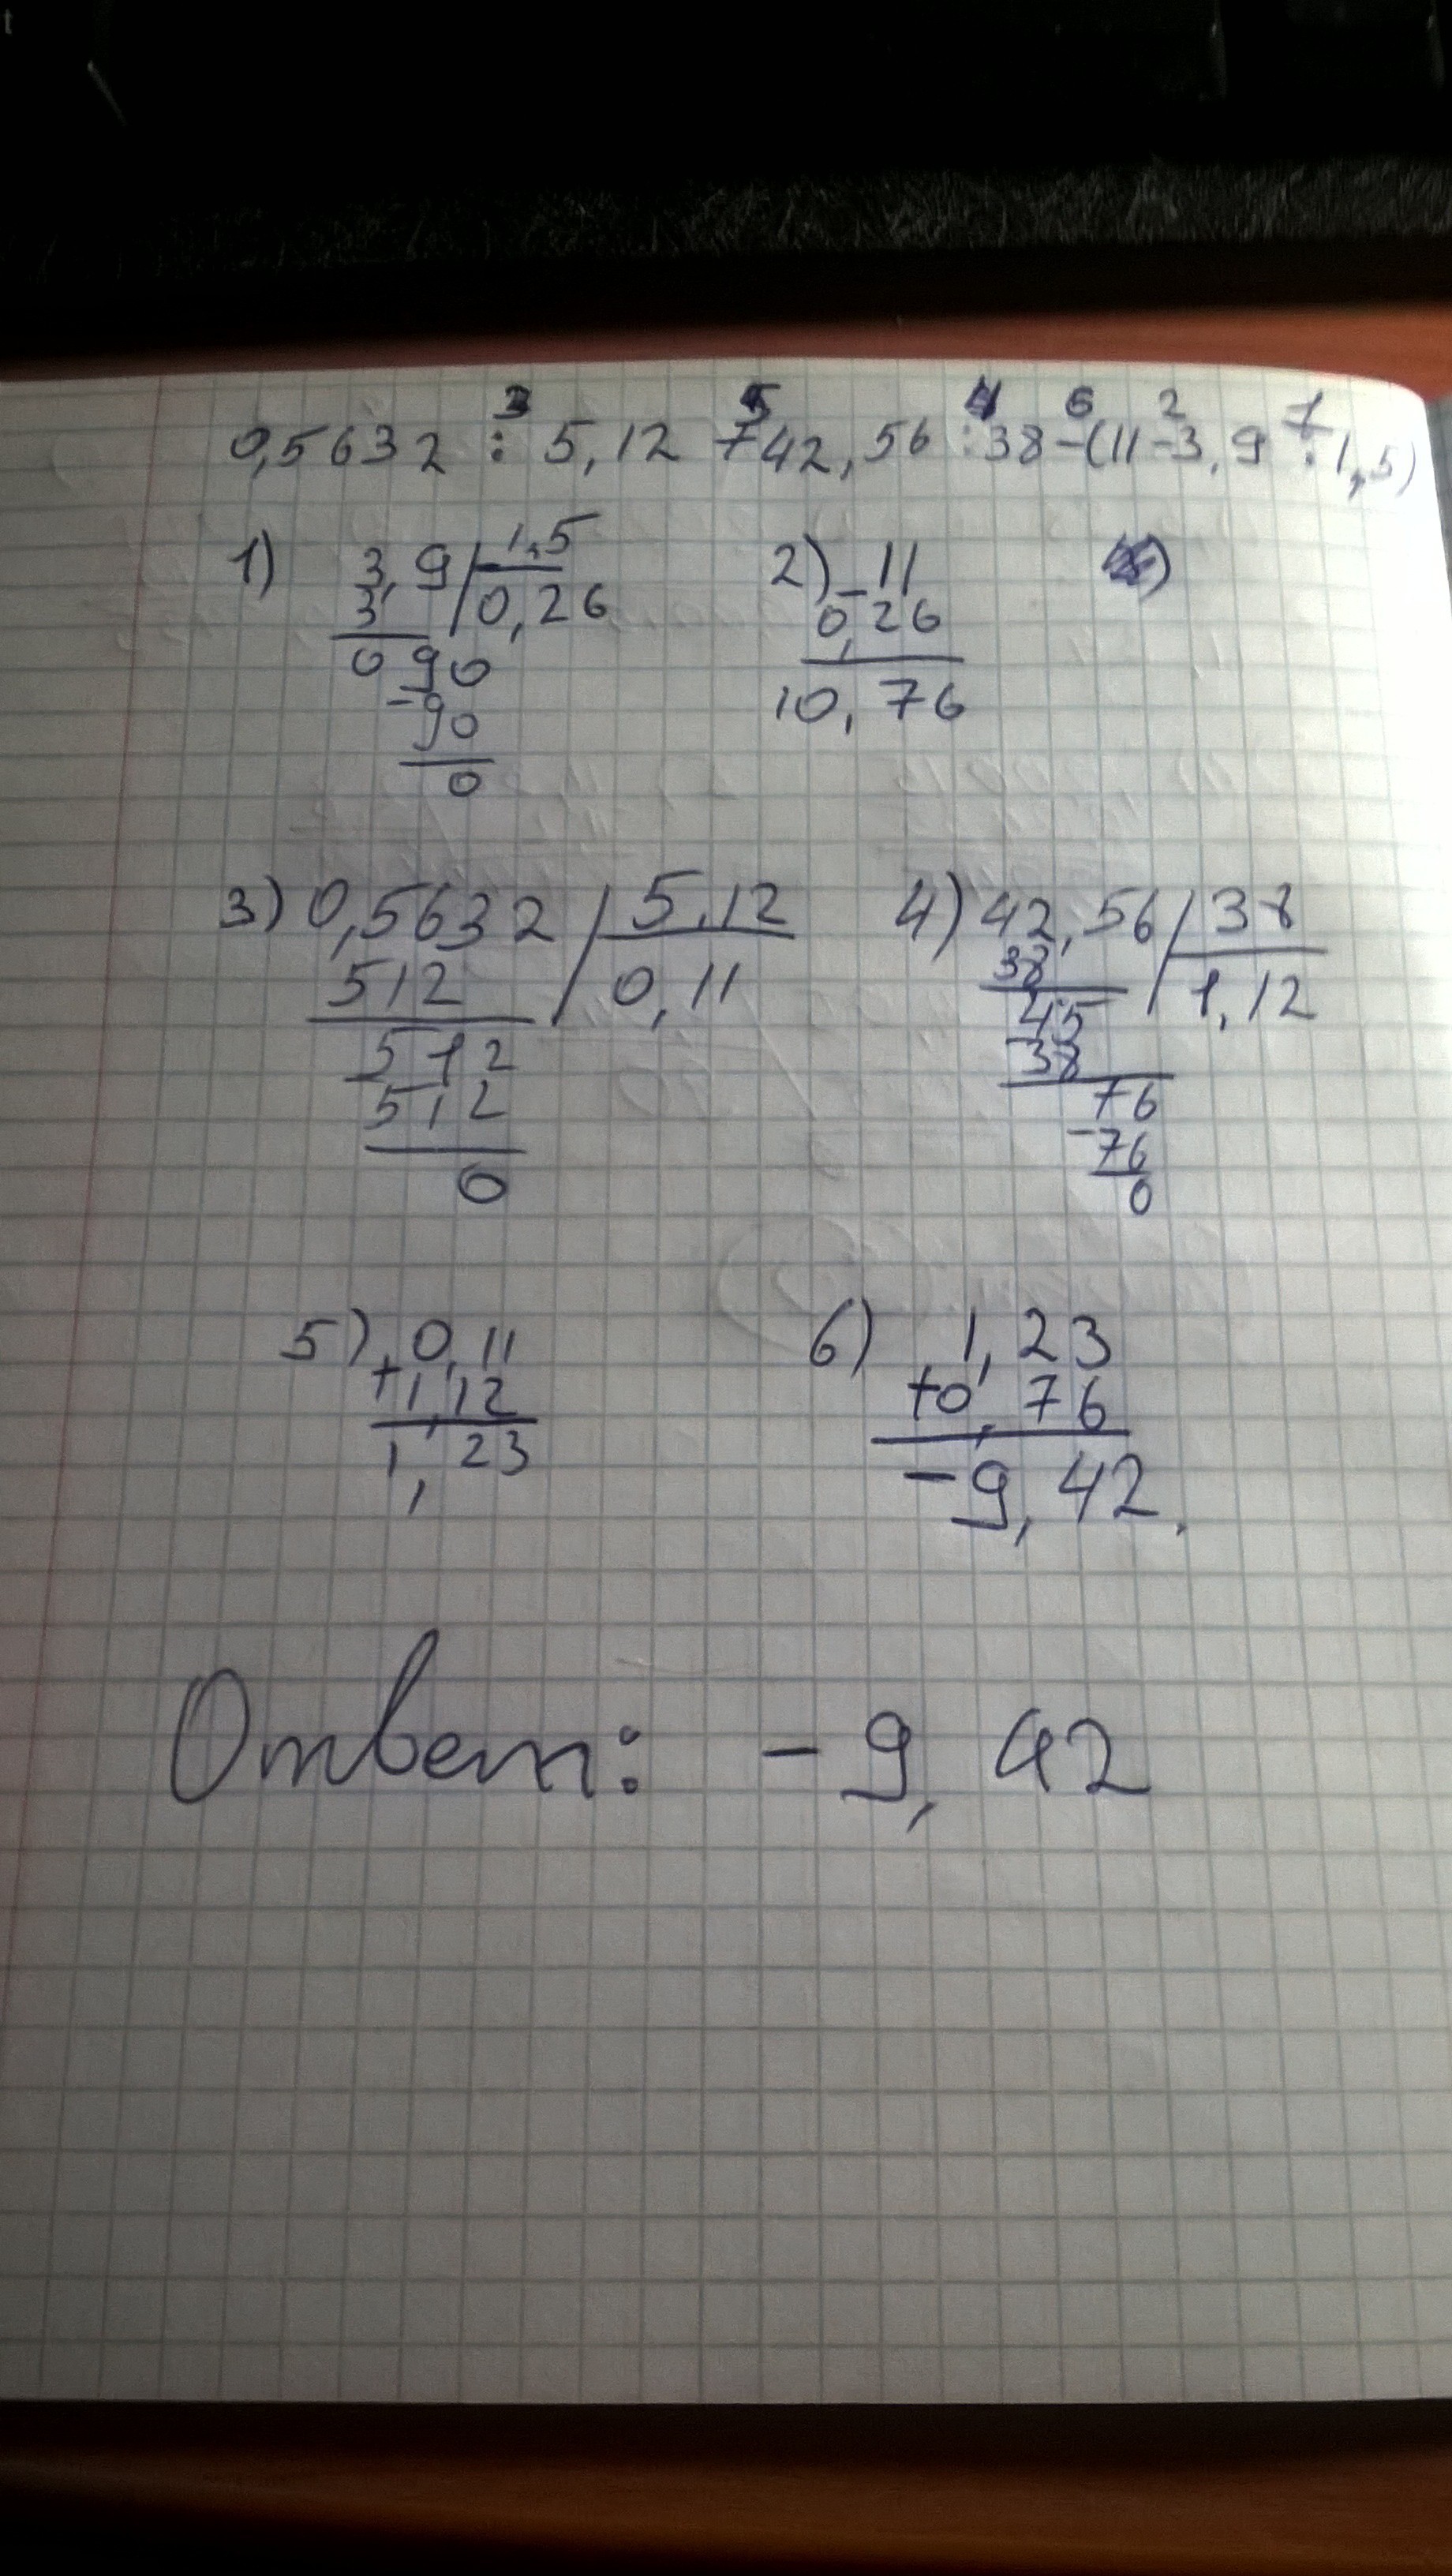 3 5 4 6 2 1
0,5632 : 5,12 + 42,56 : 38 - (11 - 3,9 : 1,5)
1) 3,9 | 1,5 2) - 11
3 | 0,26 0,26
0 90 10,76
- 90
0
3) 0,5632 | 5,12 4) 42,56 | 38
512 | 0,11 38 | 1,12
512 45
512 38
0 76
- 76
0
5) 0,11 6) 1,23
+ 1,12 +0,76
1,23 -9,42.
Ответ: -9,42